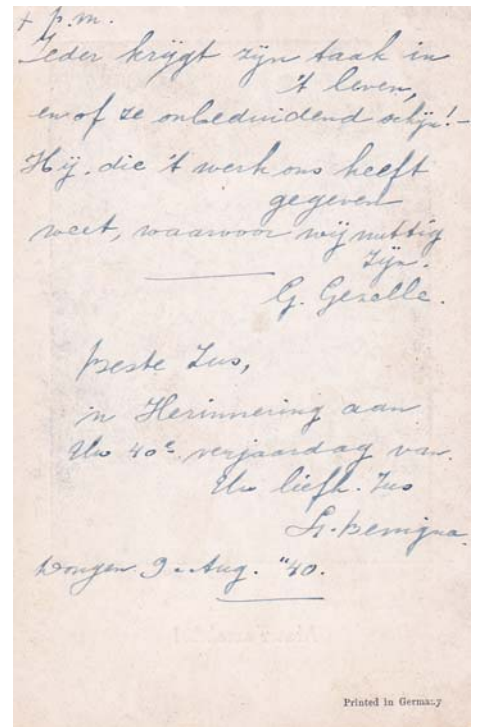 + p.m.
Ieder krijgt zijn taak in
't leven,
en of ze onbeduidend schijn'! -
Hij, die 't werk ons heeft
gegeven
weet, waarvoor wij nuttig
zijn.
G. Gezelle.
Beste Zus,
in Herinnering aan
Uw 40e verjaardag van
Uw liefh. Zus
Sr. Benigna.
Dongen 9. Aug. "40.
Printed in Germany